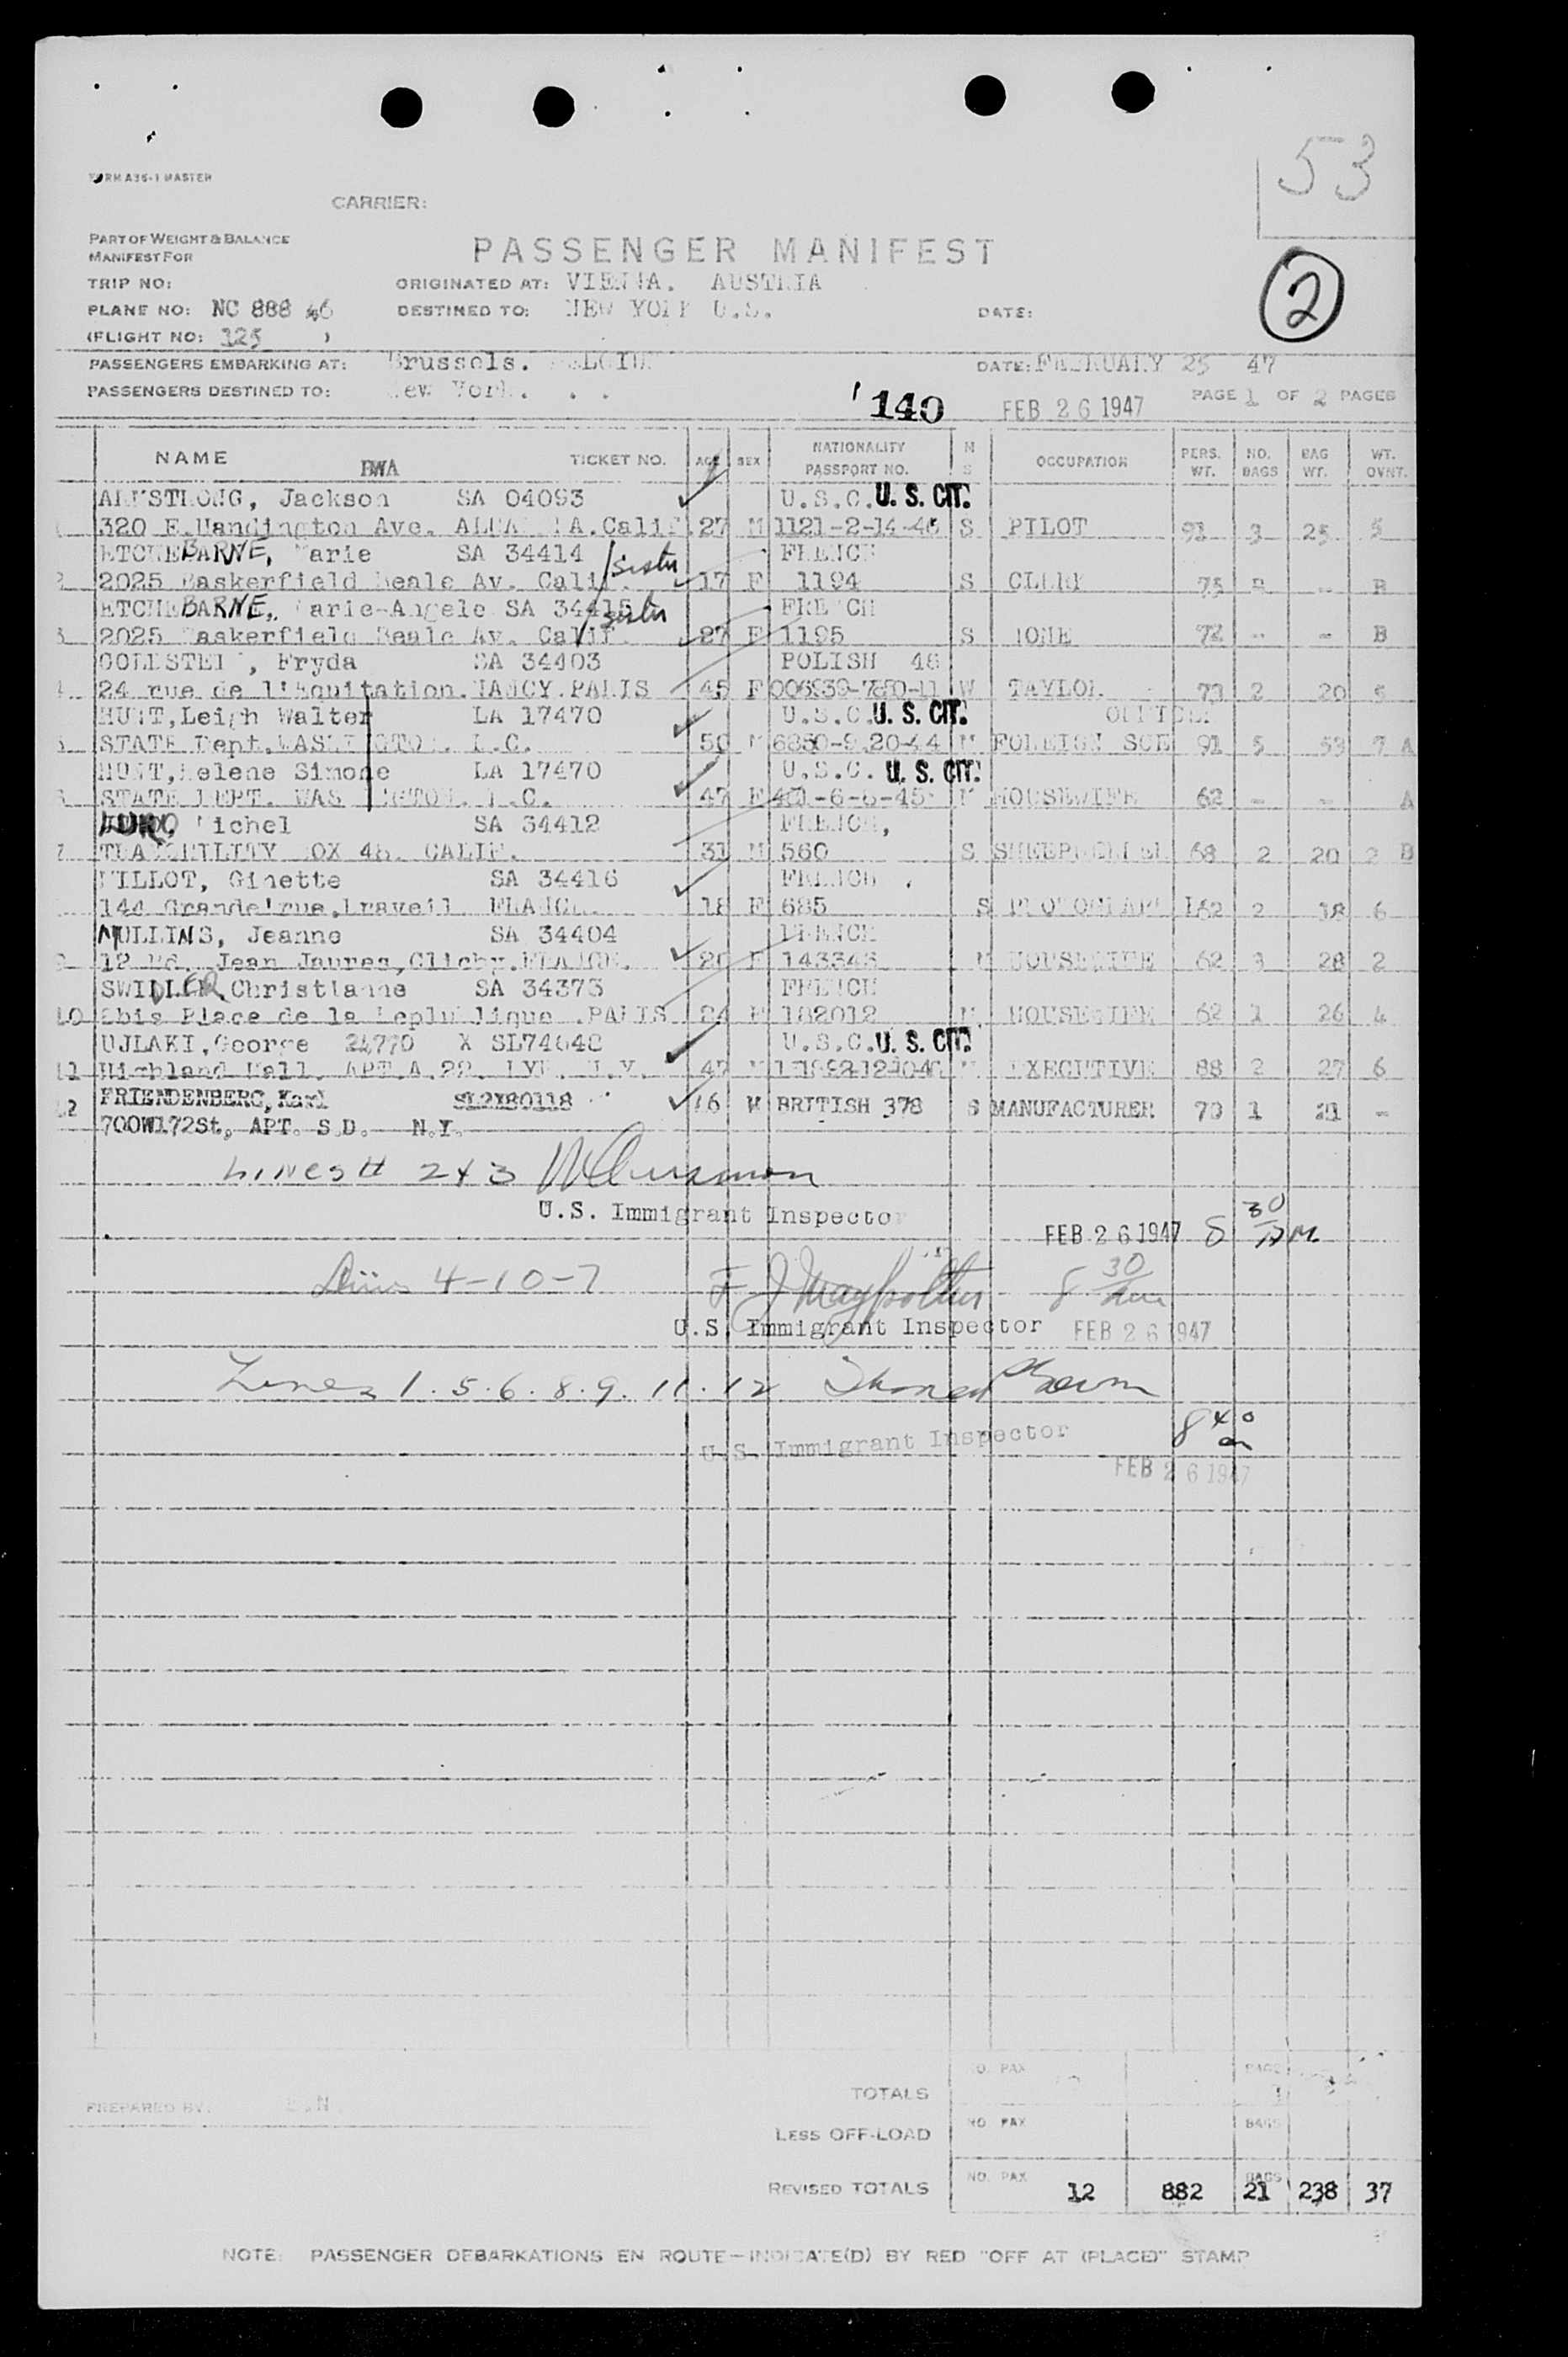 FORM A35-1 MASTER
53
CARRIER:
PART OF WEIGHT & BALANCE
MANIFEST FOR
PASSENGER MANIFEST
2
TRIP NO:
ORIGINATED AT: VIENNA. AUSTRIA
PLANE NO: NC 888 46
DESTINED TO: NEW YORK U.S.
DATE:
(FLIGHT NO: 125 )
PASSENGERS EMBARKING AT: Brussels. BELGIUM
DATE: FABRUARY 25 47
PASSENGERS DESTINED TO: New York.
140
FEB 26 1947
PAGE 1 OF 2 PAGES
NAME BWA TICKET NO. AGE SEX NATIONALITY PASSPORT NO. M S OCCUPATION PERS. WT. NO. BAGS BAG WT. WT. OVNT.
ARMSTRONG, Jackson SA 04093 U.S.C. U. S. CIT.
320 E. Calif 27 M 1121-2-14-46 S PILOT 93 3 25 5
ETCHEBARNE, Marie SA 34414 sister FRENCH
2 2025 Baskerfield Beale Av. Calif. 17 F 1194 S 75 B
ETCHEBARNE, Marie-Angele SA 34415 sister FRENCH
3 2025 Baskerfield Beale Av. Calif. 27 F 1195 S NONE 72 - - B
GOLDSTEIN, Fryda SA 34403 POLISH 46
4 24 rue de l'Equitation. NANCY. PARIS 45 F W TAYLOR 73 2 20 5
HUNT, Leigh Walter LA 17470 U.S.C. U. S. CIT. OFFICER
STATE Dept. WASHINGTON. D.C. 50 M M FOREIGN 91 5 53 7 A
HUNT, Helene Simone LA 17470 U.S.C. U. S. CIT.
STATE DEPT. WASHINGTON. D.C. 47 F M HOUSEWIFE 62 - - A
Michel SA 34412 FRENCH,
7 BOX 48. CALIF. 31 M 560 S 68 2 20 2 B
Ginette SA 34416 FRENCH
144 Grande rue. Draveil FRANCE. 18 F 685 S 62 2 18 6
MULLINS, Jeanne SA 34404 FRENCH
9 12 Bd. Jean Jaures, Clichy. FRANCE. 20 F M HOUSEWIFE 62 3 28 2
SWIDLER Christianne SA 34373 FRENCH
10 Place de la PARIS 24 F 182012 M HOUSEWIFE 62 1 26 4
UJLAKI, George X SL74648 U.S.C. U. S. CIT.
11 Highland Hall. APT. A. 22. N.Y. 47 M EXECUTIVE 88 2 27 6
12 FRIENDENBERG, Karl 16 M BRITISH 378 S MANUFACTURER 70 1 21 -
700W172St, APT. S.D. N.Y.
Lines # 2 & 3
U.S. Immigrant Inspector
FEB 26 1947 8 30 AM
Lines 4-10-7 8 30
U.S. Immigrant Inspector FEB 26 1947
Lines 1. 5. 6. 8. 9. 11. 12
8 40
U.S. Immigrant Inspector
FEB 26 1947
NO. PAX BAGS
TOTALS
PREPARED BY:
NO. PAX BAGS
LESS OFF-LOAD
NO. PAX BAGS
REVISED TOTALS 12 882 21 238 37
NOTE: PASSENGER DEBARKATIONS EN ROUTE—INDICATE(D) BY RED "OFF AT (PLACE)" STAMP